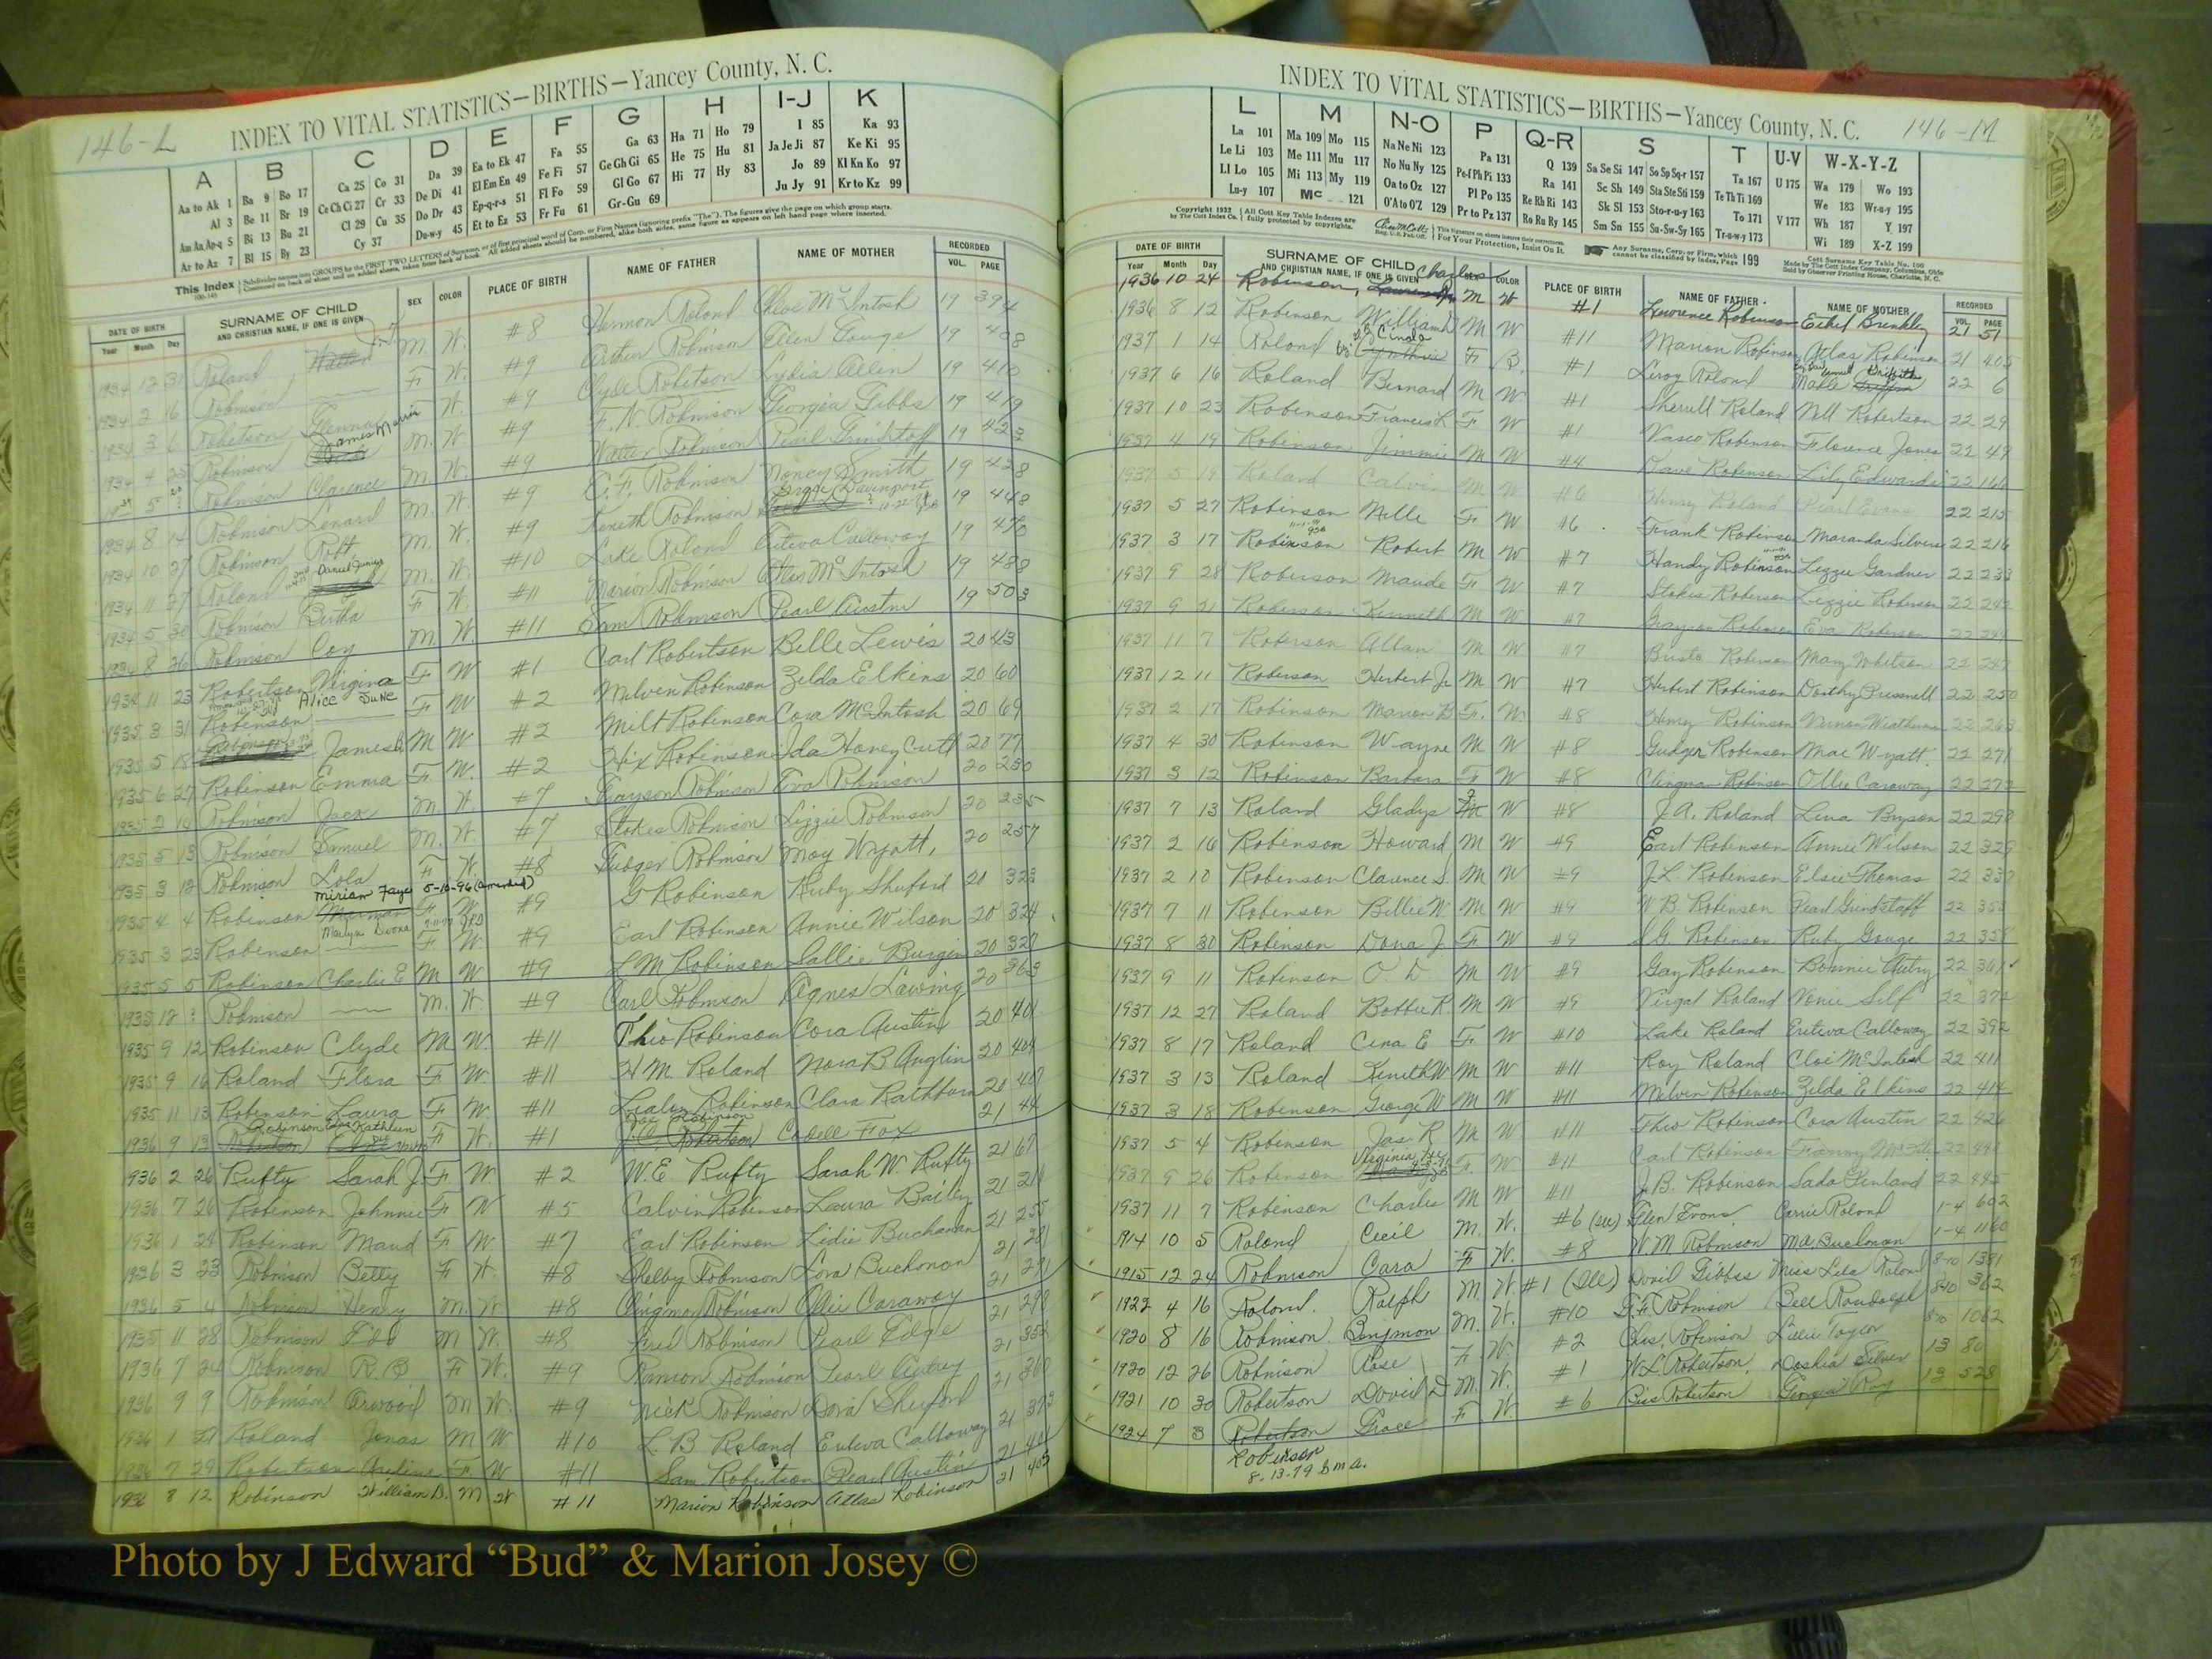 146-L
INDEX TO VITAL STATISTICS—BIRTHS—Yancey County, N. C.
A B C D E F G H I-J K
Aa to Ak 1 Ba 9 Bo 17 Ca 25 Co 31 Da 39 Ea to Ek 47 Fa 55 Ga 63 Ha 71 Ho 79 I 85 Ka 93
Al 3 Be 11 Br 19 Ce Ch Ci 27 Cr 33 De Di 41 El Em En 49 Fe Fi 57 Ge Gh Gi 65 He 75 Hu 81 Ja Je Ji 87 Ke Ki 95
Am An Ap-q 5 Bi 13 Bu 21 Cl 29 Cu 35 Do Dr 43 Ep-q-r-s 51 Fl Fo 59 Gl Go 67 Hi 77 Hy 83 Jo 89 Kl Kn Ko 97
Ar to Az 7 Bl 15 By 23 Cy 37 Du-w-y 45 Et to Ez 53 Fr Fu 61 Gr-Gu 69 Ju Jy 91 Kr to Kz 99
This Index
DATE OF BIRTH SURNAME OF CHILD AND CHRISTIAN NAME, IF ONE IS GIVEN SEX COLOR PLACE OF BIRTH NAME OF FATHER NAME OF MOTHER RECORDED
Year Month Day VOL. PAGE
1934 12 31 Roland M. W. #8 Hermon Roland Chloe McIntosh 19 394
1934 2 16 Robinson F W. #9 Arthur Robinson Ellen Gouge 19 408
1934 3 6 Robetson Glenna W. #9 Clyde Robetson Lydia Allen 19 410
Robinson James M. W. #9 F. N. Robinson Georgia Gibbs 19 419
Robinson Clarence M W. #9 Walter Robinson Pearl Grindstoff 19 423
1934 8 14 Robinson Lenard M. W. #9 C. F. Robinson Noncy Smith 19 428
1934 10 27 Robinson Robt M. W. #9 Keneth Robinson Davenport 19 448
1934 11 27 Roland Daniel Junior M. W. #10 Lake Roland Calloway 19 470
1934 5 30 Robinson Bertha F W. #11 Marion Robinson Atlas McIntosh 19 488
1934 8 26 Robinson Coy M. W. #11 Sam Robinson Pearl Austin 19 503
1934 11 23 Robertson Virginia F W #1 Carl Robertson Belle Lewis 20 43
1935 3 31 Robinson Alice June F W #2 Melven Robinson Zelda Elkins 20 60
1935 5 18 James M W #2 Milt Robinson Cora McIntosh 20 69
1935 6 27 Robinson Emma F W. #2 Hix Robinson Ida Honeycutt 20 77
1935 2 14 Robinson Jack M. W. #7 Grayson Robinson Eva Robinson 20 230
1935 5 13 Robinson Samuel M. W. #7 Stokes Robinson Lizzie Robinson 20 235
1935 3 12 Robinson Lola F W. #8 Gudger Robinson May Wyatt, 20 257
Miriam Faye 5-10-96 (amended)
1935 4 4 Robinson F W. #9 G Robinson Ruby Shuford 20 323
1935 3 23 Robinson F W. #9 Earl Robinson Annie Wilson 20 324
1935 5 5 Robinson Charlie E M W #9 L M Robinson Sallie Burgin 20 327
1935 12 ? Robinson M. W. #9 Carl Robinson Agnes Lawing 20 363
1935 9 12 Robinson Clyde M W. #11 Theo Robinson Cora Austin 20 401
1935 9 16 Roland Flora F W. #11 H M Roland Nora B Anglin 20 404
1935 11 13 Robinson Laura F W. #11 Robinson Clara Rathburn 20 407
1936 9 13 F W. #1 Cadell Fox 21 44
1936 2 26 Rufty Sarah J. F W. #2 W. E. Rufty Sarah W. Rufty 21 67
1936 7 26 Robinson Johnnie F W #5 Calvin Robinson Laura Baily 21
1936 1 24 Robinson Maud F W. #7 Earl Robinson Lidie Buchanan 21 255
1936 3 23 Robinson Betty F W. #8 Shelby Robinson Lora Buchanan 21 281
1936 5 4 Robinson Henry M. W. #8 Clingmon Robinson Ollie Caraway 21 291
1935 11 28 Robinson M W. #8 Fred Robinson Pearl Edge 21 298
1936 7 24 Robinson R. B F W. #9 Robinson Pearl Autrey 21 352
1936 9 9 Robinson Arwood M W. #9 Nick Robinson Dora Shuford 21 360
1936 1 21 Roland Jonas M W #10 L. B Roland Calloway 21 372
1936 7 29 Robertson Arilene F W #11 Sam Robertson Pearl Austin 21
1936 8 12 Robinson William D. M W #11 Marion Robinson Atlas Robinson 21 405
146-M
INDEX TO VITAL STATISTICS—BIRTHS—Yancey County, N. C.
L M N-O P Q-R S T U-V W-X-Y-Z
La 101 Ma 109 Mo 115 Na Ne Ni 123 Pa 131 Q 139 Sa Se Si 147 So Sp Sq-r 157 Ta 167 U 175 Wa 179 Wo 193
Le Li 103 Me 111 Mu 117 No Nu Ny 125 Pe-f Ph Pi 133 Ra 141 Sc Sh 149 Sta Ste Sti 159 Te Th Ti 169 We 183 Wr-u-y 195
Ll Lo 105 Mi 113 My 119 Oa to Oz 127 Pl Po 135 Re Rh Ri 143 Sk Sl 153 Sto-r-u-y 163 To 171 V 177 Wh 187 Y 197
Lu-y 107 Mc 121 O'A to O'Z 129 Pr to Pz 137 Ro Ru Ry 145 Sm Sn 155 Su-Sw-Sy 165 Tr-u-w-y 173 Wi 189 X-Z 199
Copyright 1932 by The Cott Index Co. All Cott Key Table Indexes are fully protected by copyrights. For Your Protection, Insist On It. Any Surname, Corp. or Firm, which cannot be classified by Index, Page 199
DATE OF BIRTH SURNAME OF CHILD AND CHRISTIAN NAME, IF ONE IS GIVEN SEX COLOR PLACE OF BIRTH NAME OF FATHER NAME OF MOTHER RECORDED
Year Month Day VOL. PAGE
1936 10 24 Robinson, Charles M W #1 Lawrence Robinson Ethel Brinkley 21 51
1936 8 12 Robinson William D M W #11 Marion Robinson Atlas Robinson 21 405
1937 1 14 Roland Cinda F B. #1 Leroy Roland Mable 22 6
1937 6 16 Roland Bernard M W #1 Sherrill Roland Nell Robertson 22 29
1937 10 23 Robinson Francis L F W #1 Vasco Robinson Florence Jones 22 49
1937 4 19 Robinson Jimmie M W #4 Dave Robinson Lily Edwards 22 166
1937 5 19 Roland Calvin M W #6 Henry Roland Pearl Evans 22 215
1937 5 27 Robinson Nelle F W #6 Frank Robinson Maranda Silvers 22 216
1937 3 17 Robinson Robert M W #7 Handy Robinson Lizzie Gardner 22 233
1937 9 28 Roberson Maude F W #7 Stokes Roberson Lizzie Robinson 22 242
1937 9 21 Roberson Kenneth M W #7 Grayson Roberson Eva Roberson 22 244
1937 11 7 Roberson Allan M W #7 Busto Roberson Mary Whitson 22 247
1937 12 11 Roberson Herbert Jr M W #7 Herbert Robinson Dorthy Presnell 22 250
1937 2 17 Robinson Marion B F. W. #8 Henry Robinson 22 263
1937 4 30 Robinson Wayne M W #8 Gudger Robinson Mae Wyatt. 22 271
1937 3 12 Robinson Barbara F W #8 Clingman Robinson Ollie Caraway 22 273
1937 7 13 Roland Gladys F W #8 J. A. Roland Lina Bryson 22 290
1937 2 16 Robinson Howard M W #9 Earl Robinson Annie Wilson 22 329
1937 2 10 Robinson Clarence S. M W #9 J. L. Robinson Elsie Thomas 22 337
1937 7 11 Robinson Billie W. M W #9 W. B. Robinson Pearl Grindstaff 22 353
1937 8 30 Robinson Dona J. F W #9 S. G. Robinson Ruby Gouge 22 358
1937 9 11 Robinson O D M W #9 Gay Robinson Bonnie Autry 22 361
1937 12 27 Roland Bobbie R. M W #9 Virgal Roland Vonie Silf 22 372
1937 8 17 Roland Cena E F W #10 Lake Roland Calloway 22 392
1937 3 13 Roland Kenith W M W #11 Roy Roland Cloe McIntosh 22 411
1937 3 18 Robinson George W M W #11 Melvin Robinson Zelda Elkins 22 414
1937 5 4 Robinson Jas. R M W #11 Theo Robinson Cora Austin 22 426
1937 9 26 Robinson Virginia F. W #11 Carl Robinson 22 441
1937 11 7 Robinson Charles M W #11 J. B. Robinson Sada Penland 22 445
1914 10 5 Roland Cecil M. W. #6 (see) Glen Evans Carrie Roland 1-4 602
1915 12 24 Robinson Cara F W. #8 W. M Robinson M A. Buchanan 1-4 1160
1922 4 16 Roland Ralph M W. #1 (See) David Gibbs Miss Lela Roland 8-10 1381
1920 8 16 Robinson Benjmon M. W. #10 G. F. Robinson Bell Randolph 8-10 362
1920 12 26 Robinson Rose F W. #2 Chs. Robinson Lillie Taylor 8-10 1062
1921 10 30 Robertson David D M. W. #1 W. L. Robertson, Doshia Silver 13 80
1924 7 3 Robertson Grace F. W. #6 Robertson Georgia Ray 13 528
Robinson
8-13-79 bma.
Photo by J Edward “Bud” & Marion Josey ©